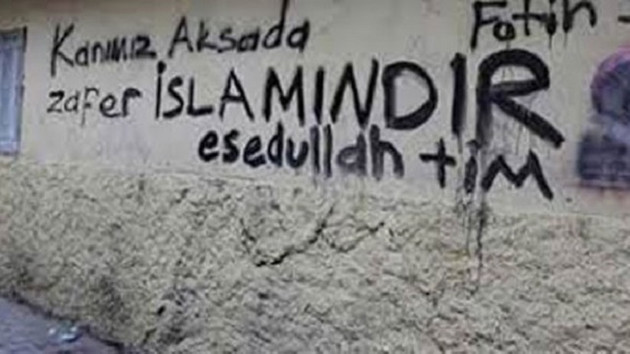 Fatih
Kanımız Aksada
zafer İSLAMINDIR
esedullah tim